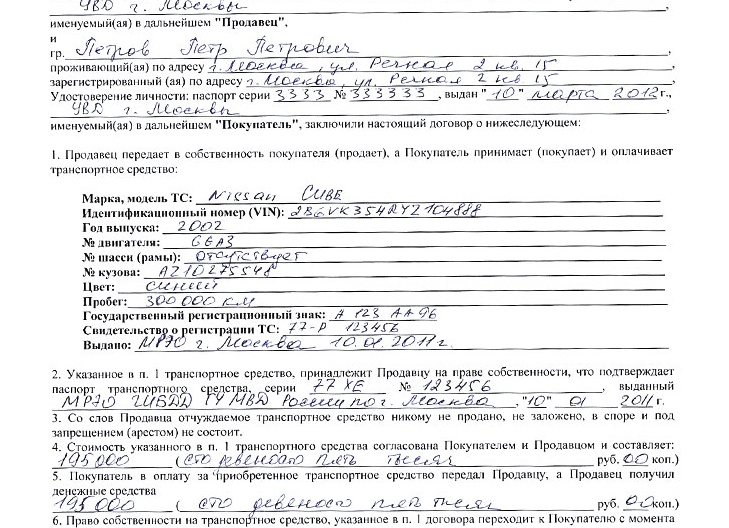 УВД г. Москвы
именуемый(ая) в дальнейшем "Продавец",
и
гр. Петров Петр Петрович
проживающий(ая) по адресу г. Москва, ул. Речная 2 кв. 15,
зарегистрированный (ая) по адресу г. Москва, ул. Речная 2 кв 15,
Удостоверение личности: паспорт серии 3333 № 333333, выдан "10" марта 2012 г.,
УВД г. Москвы,
именуемый(ая) в дальнейшем "Покупатель", заключили настоящий договор о нижеследующем:
1. Продавец передает в собственность покупателя (продает), а Покупатель принимает (покупает) и оплачивает
транспортное средство:
Марка, модель ТС: Nissan CUBE
Идентификационный номер (VIN): 2B6VK354RYZ104888
Год выпуска: 2002
№ двигателя: GGA3
№ шасси (рамы): отсутствует
№ кузова: AZ10275548
Цвет: синий
Пробег: 300 000 км
Государственный регистрационный знак: А 123 АА 96
Свидетельство о регистрации ТС: 77-Р 123456
Выдано: МРЭО г. Москва 10.01.2011 г.
2. Указанное в п. 1 транспортное средство, принадлежит Продавцу на праве собственности, что подтверждает
паспорт транспортного средства, серии 77 ХЕ № 123456, выданный
МРЭО ГИБДД ГУ МВД России по г. Москва, "10" 01 2011 г.
3. Со слов Продавца отчуждаемое транспортное средство никому не продано, не заложено, в споре и под
запрещением (арестом) не состоит.
4. Стоимость указанного в п. 1 транспортного средства согласована Покупателем и Продавцом и составляет:
195 000 (сто девеносто пять тысяч руб. 00 коп.)
5. Покупатель в оплату за приобретенное транспортное средство передал Продавцу, а Продавец получил
денежные средства
195 000 (сто девеносто пять тысяч руб. 00 коп.)
6. Право собственности на транспортное средство, указанное в п. 1 договора переходит к Покупателю с момента